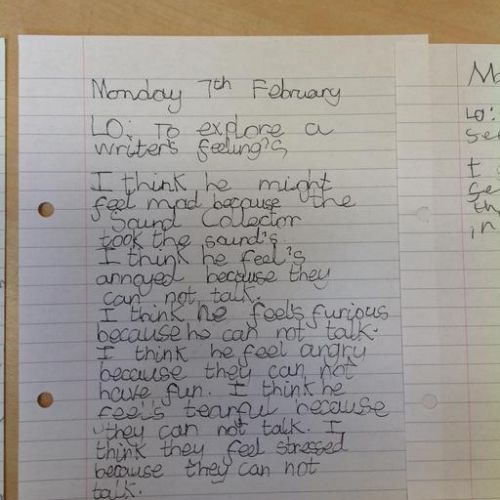 Monday 7th February
LO: To explore a
writer's feeling's
I think he might
feel mad because the
Sound Collector
took the sound's.
I think he feel's
annoyed because they
can not talk.
I think he feel's furious
because he can not talk.
I think he feel angry
because they can not
have fun. I think he
feel's tearful because
they can not talk. I
think they feel stressed
because they can not
talk.
Mo
LO:
Se
I
Se
th
in